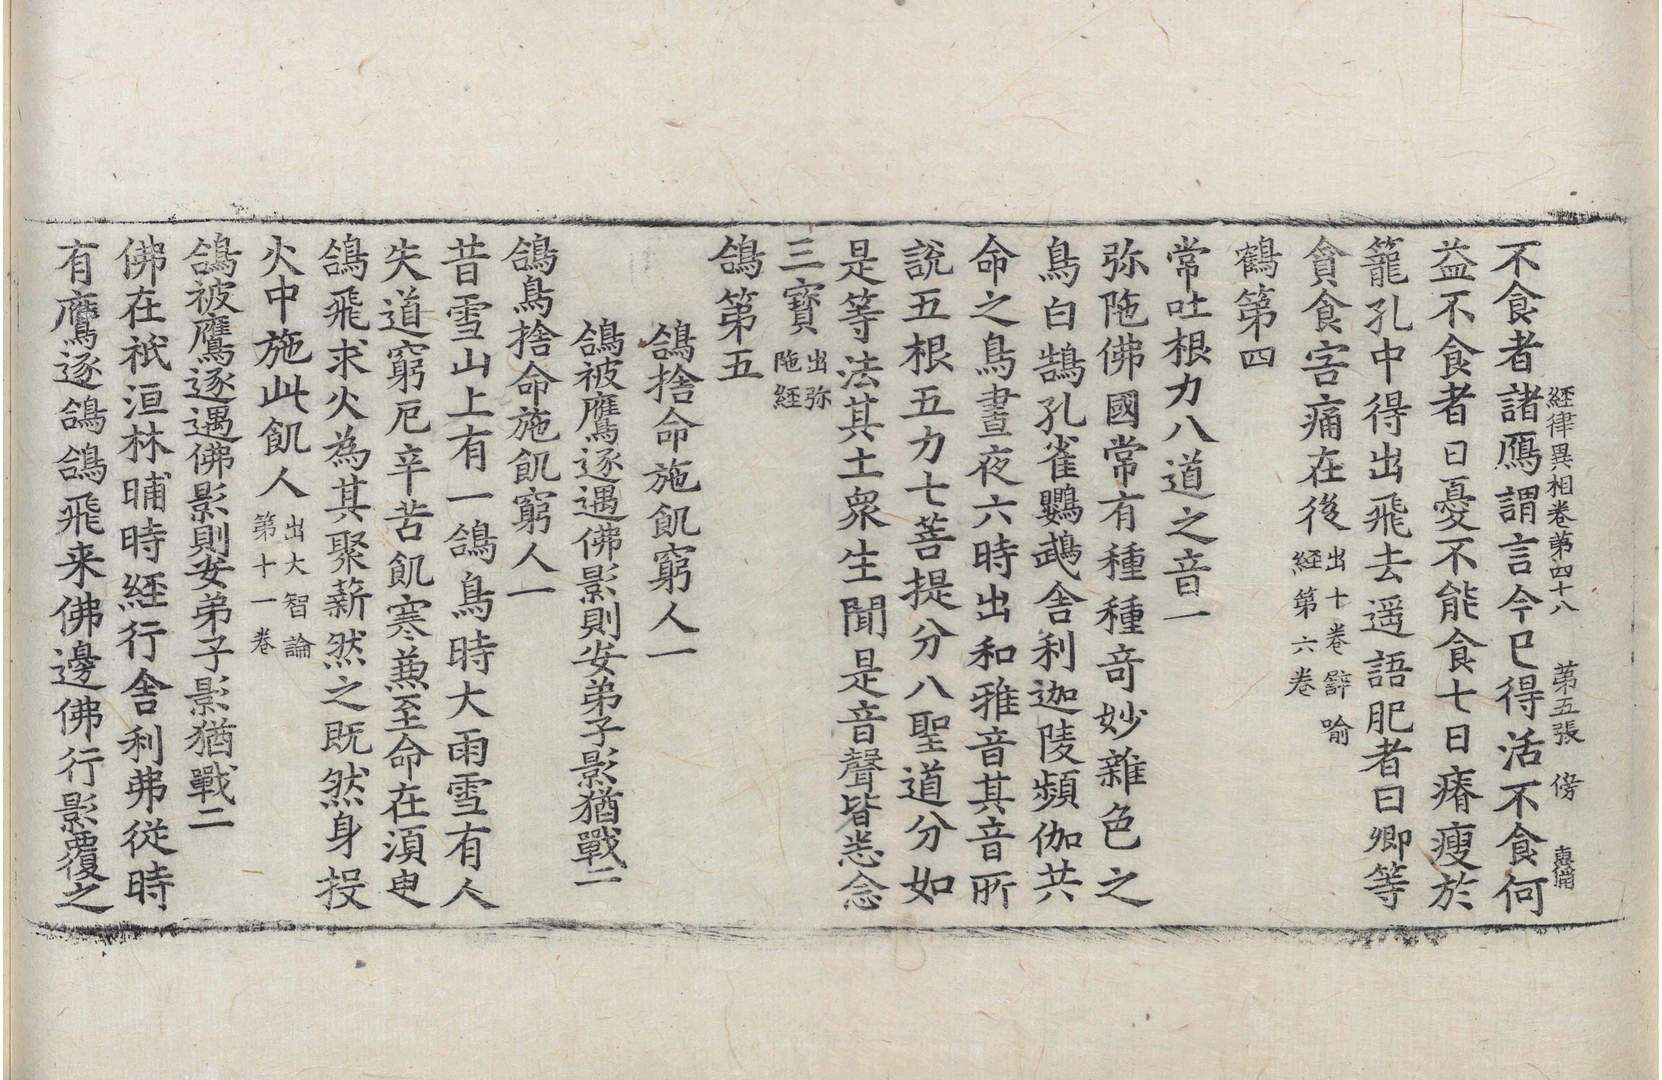 経律異相卷第四十八 第五張 傍 惠俻
不食者諸鴈謂言今巳得活不食何
益不食者曰憂不能食七日瘠瘦於
籠孔中得出飛去遥語肥者曰卿等
貪食害痛在後出十卷辭喻経第六卷
鶴第四
常吐根力八道之音一
弥陁佛國常有種種竒妙雜色之
鳥白鵠孔雀鸚鵡舎利迦陵頻伽共
命之鳥晝夜六時出和雅音其音所
說五根五力七菩提分八聖道分如
是等法其土衆生聞是音聲皆悉念
三寳出弥陁経
鴿第五
鴿捨命施飢窮人一
鴿被鷹逐遇佛影則安弟子影猶戰二
鴿鳥捨命施飢窮人一
昔雪山上有一鴿鳥時大雨雪有人
失道窮厄辛苦飢寒兼至命在湏臾
鴿飛求火為其聚薪然之既然身投
火中施此飢人出大智論第十一卷
鴿被鷹逐遇佛影則安弟子影猶戰二
佛在祇洹林晡時経行舎利弗従時
有鷹逐鴿鴿飛来佛邊佛行影覆之